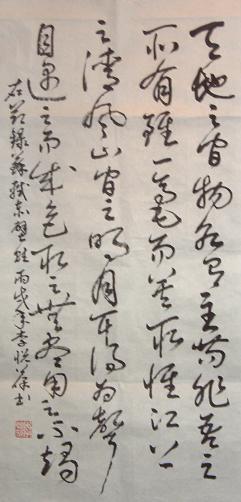 天地之間物各有主苟非吾之
所有雖一毫而莫取惟江上
之清風山間之明月耳得為聲
目遇之而成色取之無盡用之不竭
右節錄蘇軾赤壁賦丙戌年李書